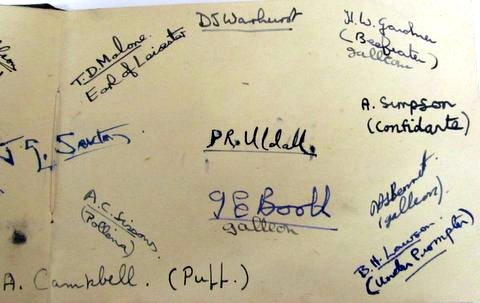 T.D. Malone.
Earl of Leicester
DJ Warhurst
H.W. Gardner
(Beefeater)
galleon
A. Simpson
(Confidante)
P.R. Uldall.
A.C. Sissons.
(Pollina)
G E Booth
galleon
Bennet.
(galleon).
B.H. Lawson.
(Under Prompter)
A. Campbell. (Puff.)